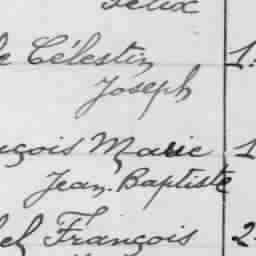 Félix
Célestin 1
Joseph
François Marie 1
Jean-Baptiste
François 2